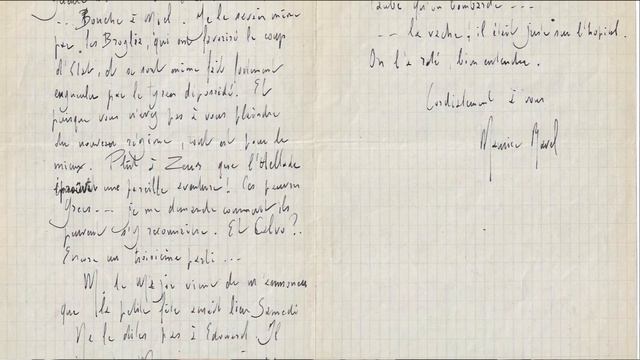 ... Bouche à Miel. Ne le savoir même
pas, les Broglia, qui ont favorisé le coup
d'Etat, et se sont même fait
engueuler par le tyran dépossédé. Et
puisque vous n'avez pas à vous plaindre
du nouveau régime, tout est pour le
mieux. Plût à Zeus que l'Hellade
une pareille aventure! Ces pauvres
Grecs --- je me demande comment ils
peuvent s'y reconnaître. Et Calvo?.
Encore un troisième parti ...
M. de vient de m'annoncer
que la petite fête aurait lieu Samedi
Ne le dites pas à Edouard Il
qu'on bombarde ---
--- la vache; il était juste sur l'hôpital.
On l'a raté, bien entendu.
Cordialement à vous
Maurice Ravel